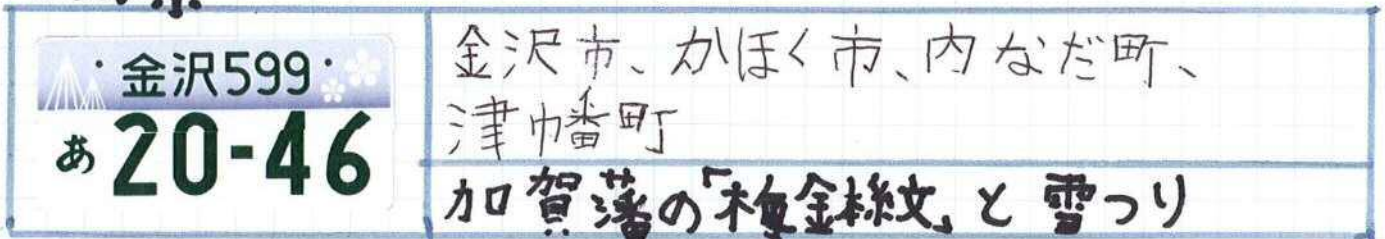 金沢599
あ 20-46
金沢市、かほく市、内なだ町、
津幡町
加賀藩の「梅金紋」と雪つり